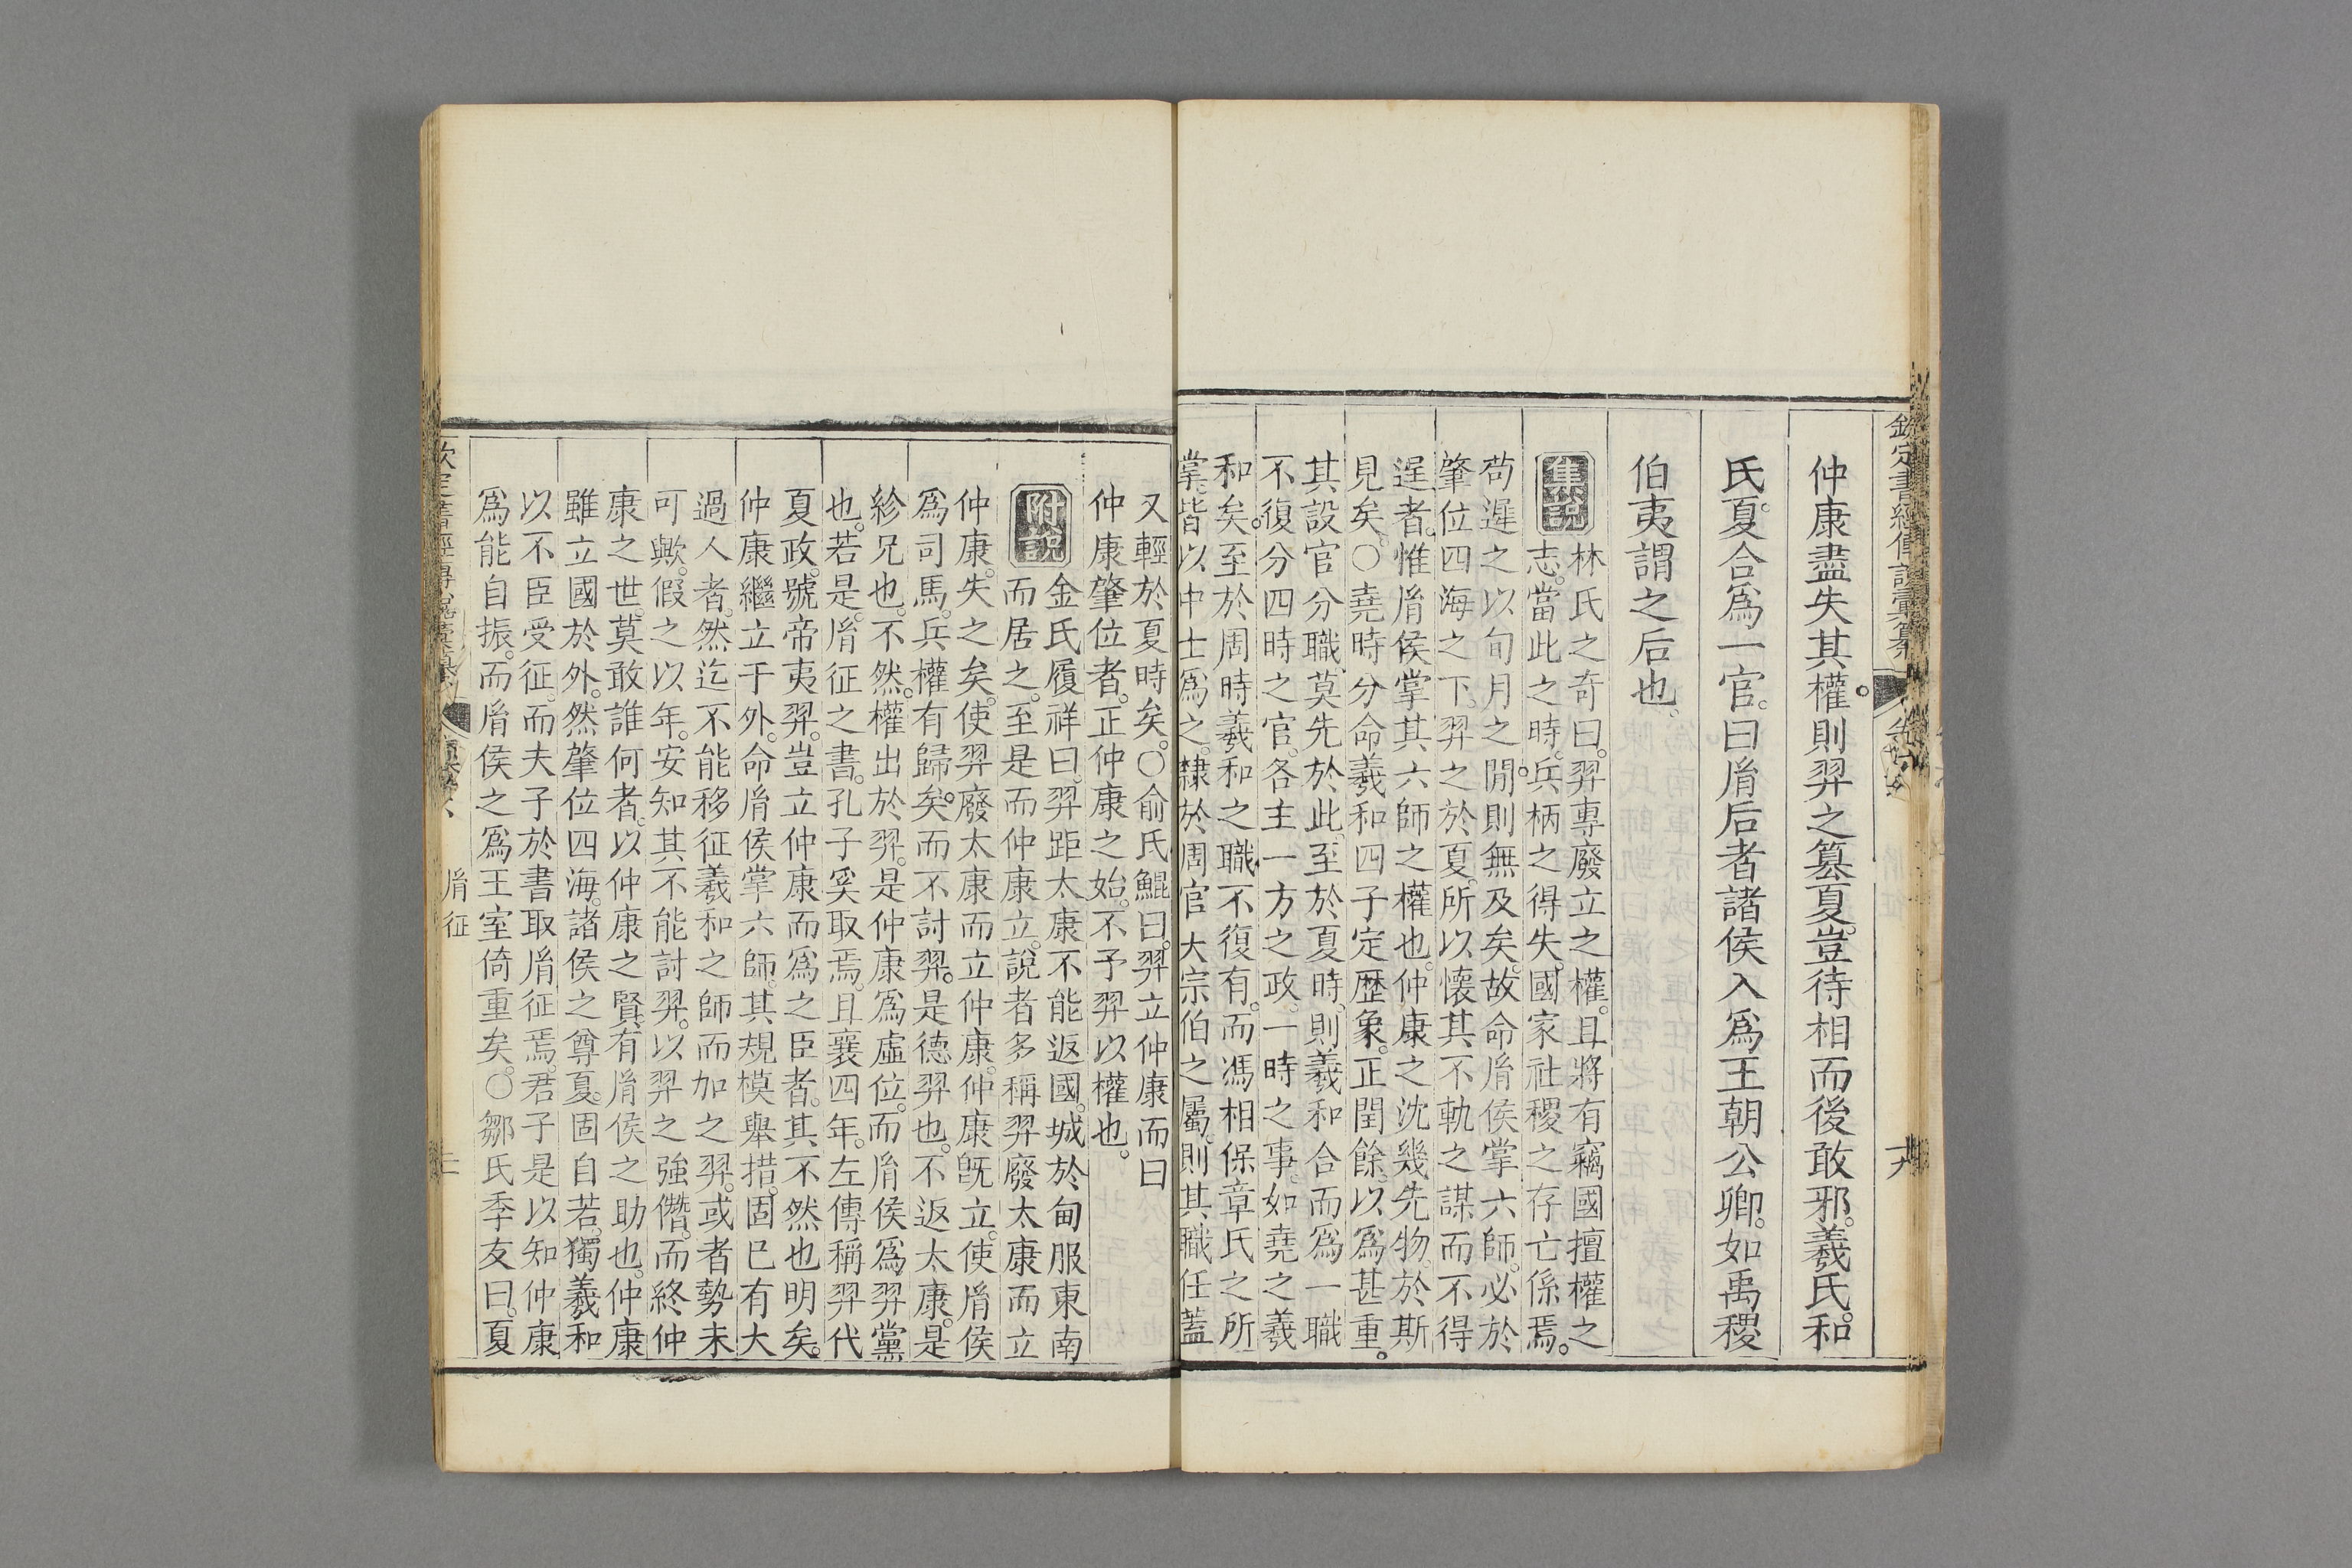 欽定書經傳說彙纂
仲康盡失其權則羿之簒夏。豈待相而後敢邪。羲氏。和
氏。夏合爲一官。曰胤后者諸侯入爲王朝公卿。如禹稷
伯夷謂之后也。
集說
林氏之奇曰。羿專廢立之權。且將有竊國擅權之
志。當此之時。兵柄之得失。國家社稷之存亡係焉。
苟遲之以旬月之閒則無及矣。故命胤侯掌六師。必於
肇位四海之下。羿之於夏。所以懷其不軌之謀而不得
逞者。惟胤侯掌其六師之權也。仲康之沈幾先物。於斯
見矣。○堯時分命羲和四子定歷象。正閏餘。以爲甚重。
其設官分職。莫先於此。至於夏時。則羲和合而爲一職
不復分四時之官。各主一方之政。一時之事。如堯之羲
和矣。至於周時羲和之職不復有。而馮相保章氏之所
掌。皆以中士爲之。隸於周官大宗伯之屬。則其職任蓋
又輕於夏時矣。○俞氏鯤曰。羿立仲康而曰
仲康肇位者。正仲康之始。不予羿以權也。
附說
金氏履祥曰。羿距太康不能返國。城於甸服東南
而居之。至是而仲康立。說者多稱羿廢太康而立
仲康。失之矣。使羿廢太康而立仲康。仲康旣立。使胤侯
爲司馬。兵權有歸矣。而不討羿。是德羿也。不返太康。是
紾兄也。不然。權出於羿。是仲康爲虛位。而胤侯爲羿黨
也。若是。胤征之書。孔子奚取焉。且襄四年。左傳稱羿代
夏政。號帝夷羿。豈立仲康而爲之臣者。其不然也明矣。
仲康繼立于外。命胤侯掌六師。其規模舉措。固已有大
過人者。然迄不能移征羲和之師而加之羿。或者勢未
可歟。假之以年。安知其不能討羿。以羿之強僭。而終仲
康之世。莫敢誰何者。以仲康之賢。有胤侯之助也。仲康
雖立國於外。然肇位四海。諸侯之尊夏。固自若。獨羲和
以不臣受征。而夫子於書取胤征焉。君子是以知仲康
爲能自振。而胤侯之爲王室倚重矣。○鄒氏季友曰。夏
胤征